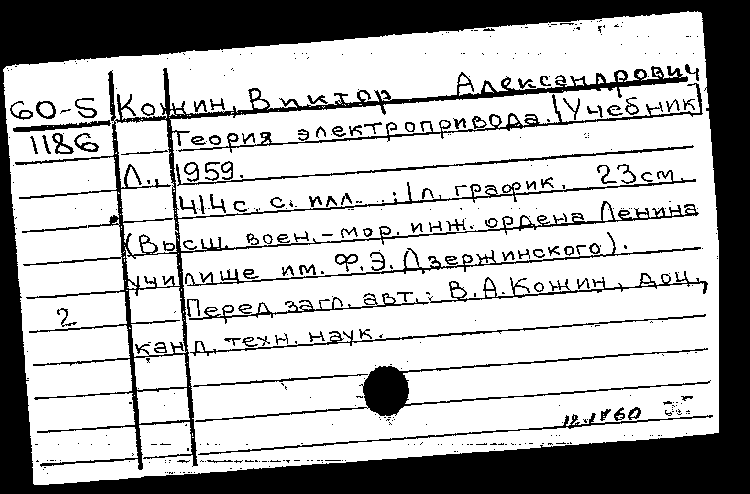 60-5 Кожин, Виктор Александрович
1186 Теория электропривода. [Учебник].
Л., 1959.
414 с. с. илл.; 1 л. график. 23 см.
(Высш. воен.-мор. инж. ордена Ленина
училище им. Ф.Э. Дзержинского).
2 Перед загл. авт.: В.А. Кожин, доц.,
канд. техн. наук.
12.IV 60